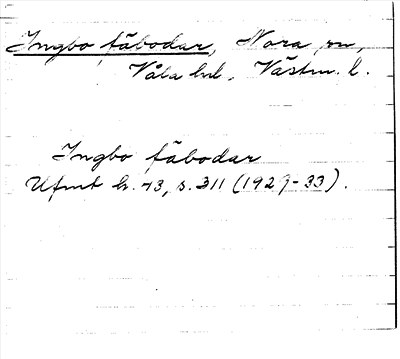 Ingbo fäbodar, Nora sn,
Våla hd, Västm. l.
Ingbo fäbodar
Ufmt h. 43, s. 311 (1929-33).